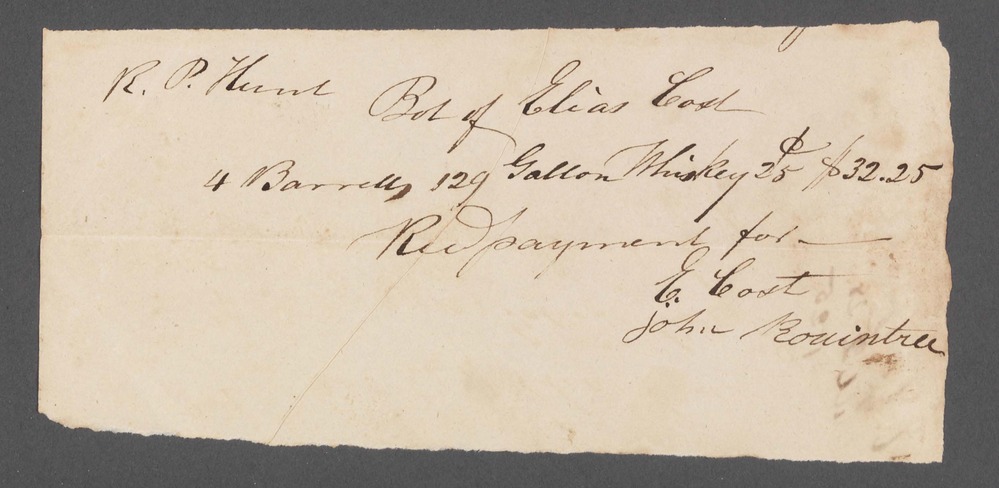 R. P. Hunt
Bot of Elias Cost
4 Barrells 129 Gallon Whiskey 25 ¢ $32.25
Recd payment for
E. Cost
John Rouintree